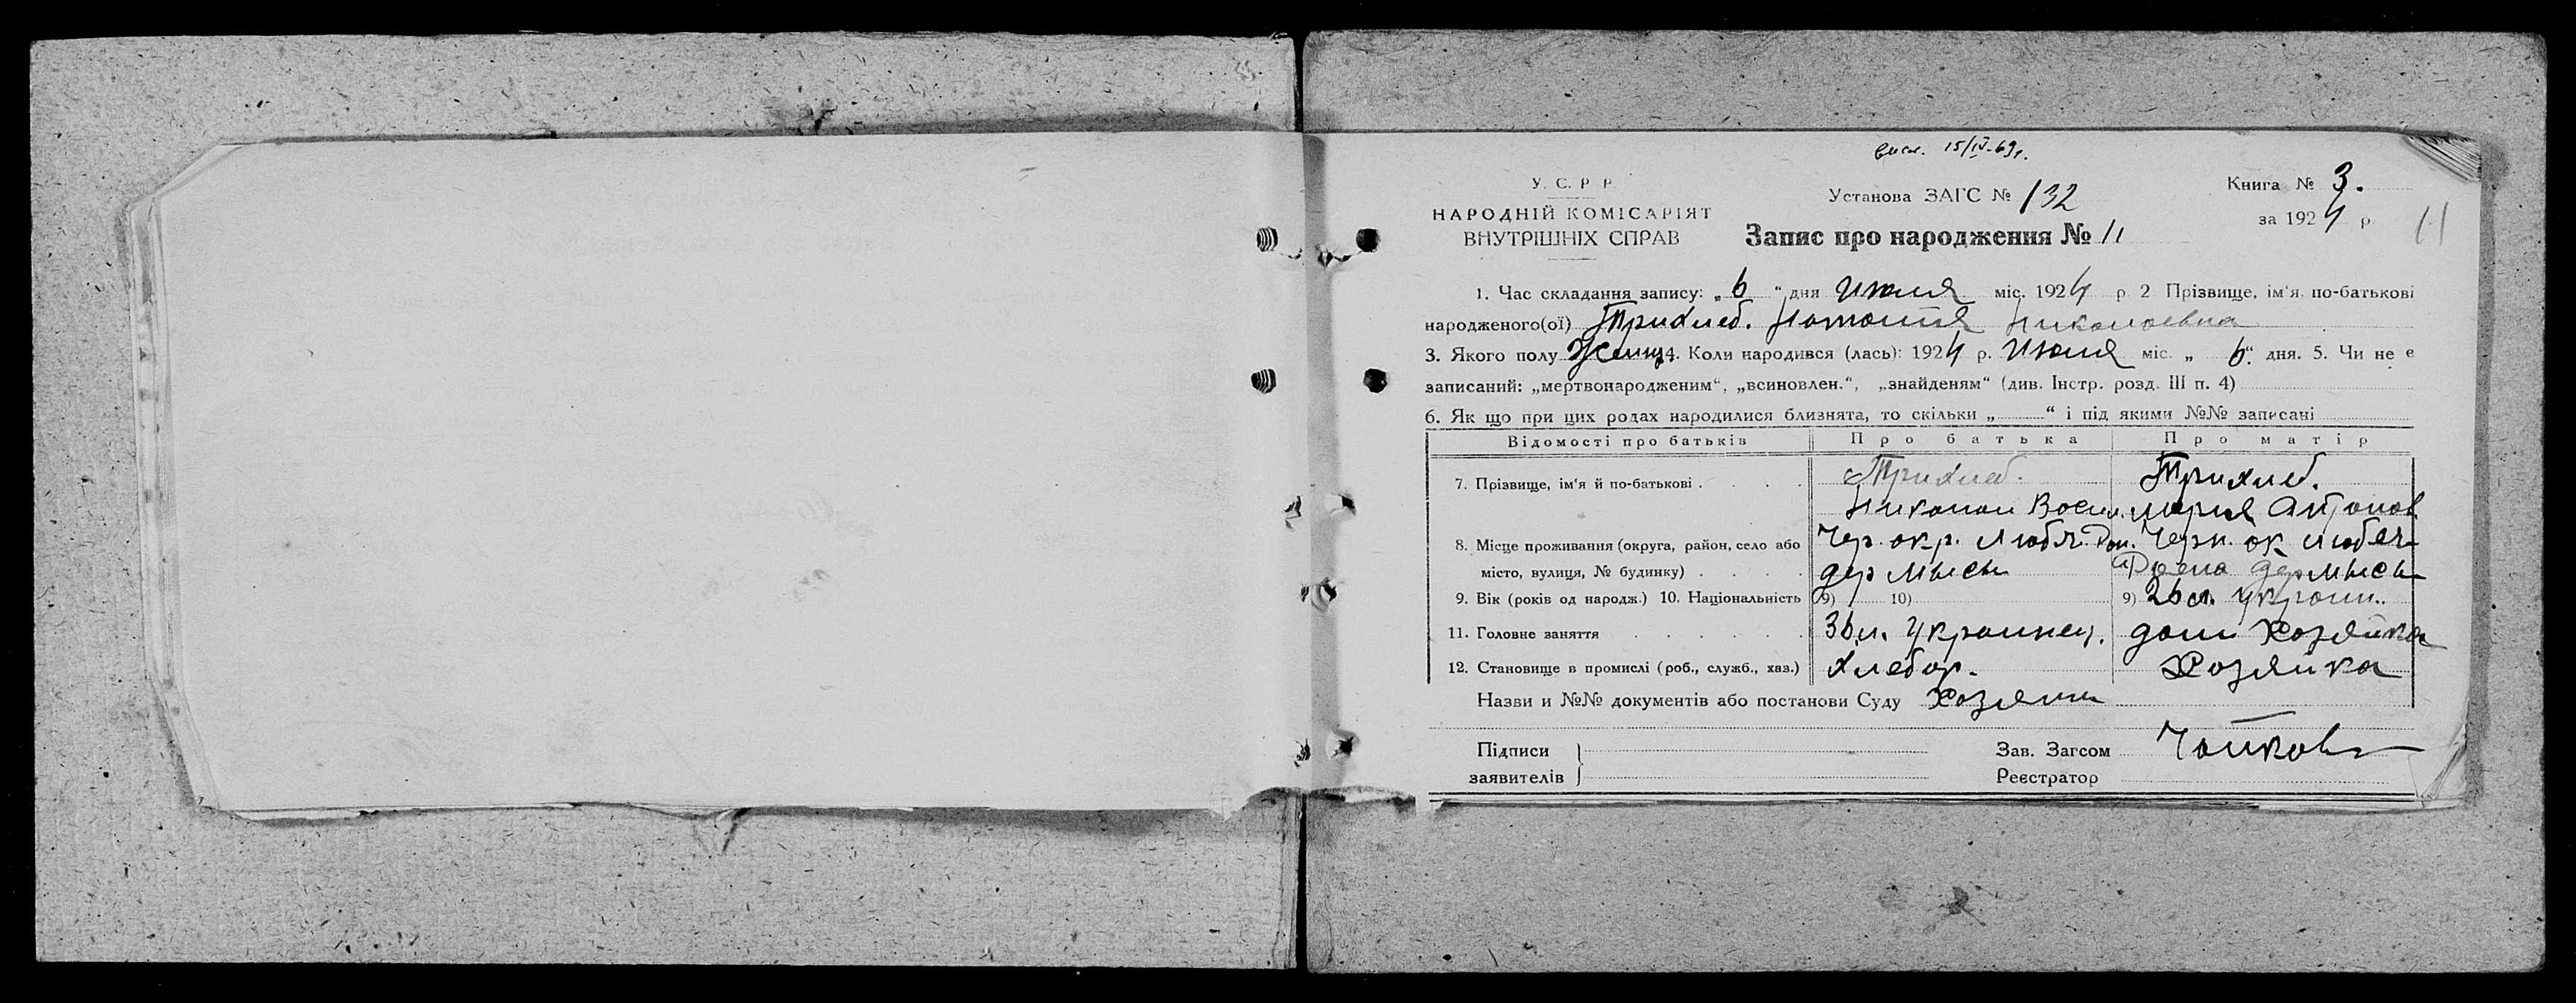 вися. 15/IV-69г.
У. С. Р. Р.
НАРОДНІЙ КОМІСАРІЯТ
ВНУТРІШНІХ СПРАВ
Установа ЗАГС № 132
Книга № 3.
за 1924 р.
11
Запис про народження № 11
1. Час складання запису: „6“ дня Июля міс. 1924 р. 2 Прізвище, ім‘я, по-батькові
народженого(ої) Трихлеб. Наталия Николаевна
3. Якого полу Женщ 4. Коли народився (лась): 1924 р. Июля міс. „6“ дня. 5. Чи не е
записаний: „мертвонародженим“, „всиновлен.“, „знайденям“ (див. Інстр. розд. III п. 4)
6. Як що при цих родах народилися близнята, то скільки „ “ і під якими №№ записані
Відомості про батьків Про батька Про матір
7. Прізвище, ім‘я й по-батькові . . . . Трихлеб. Трихлеб.
Николай Васил. мария Антонов
8. Місце проживання (округа, район, село або Чер. окр. Любеч. Чери. ок Любеч
місто, вулиця, № будинку) . . . . дер Мысы дер Мысы
9. Вік (років од народж.) 10. Національність 9) 10) 9) 26 л. Украин.
11. Головне заняття . . . . . . 36 л. Украинец. дом Хозяйка
12. Становище в промислі (роб., служб., хаз.) Хлебор. Хозяйка
Назви и №№ документів або постанови Суду Хозяин
Підписи
заявителів
Зав. Загсом
Реєстратор